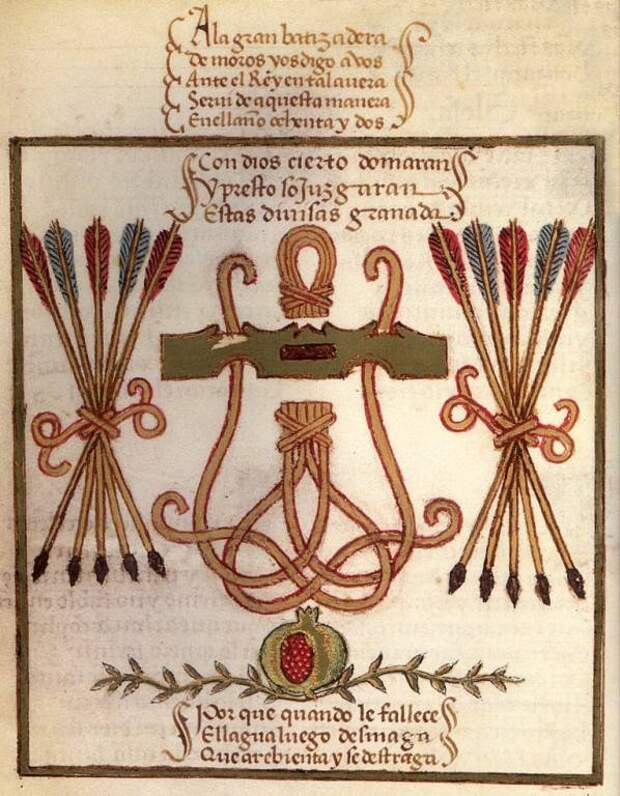 A la gran batizadera
de moros vos digo a vos
Ante el Rey en talauera
Serui de aquesta manera
En el año ochenta y dos
Con dios cierto domaran
y presto sojuzgaran
Estas diuisas granada
Por que quando le fallece
El lagua luego desmaga
Que arebienta y se destraga